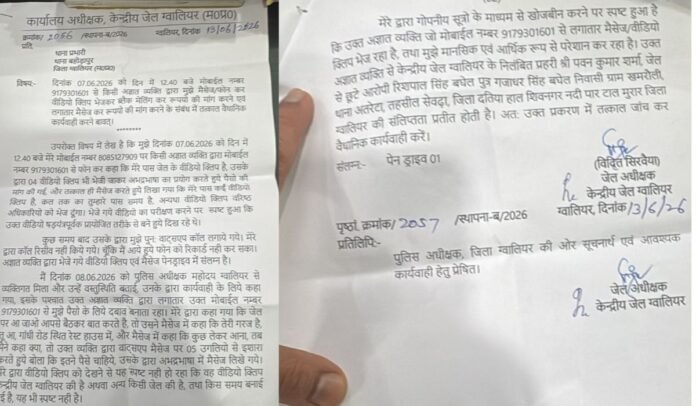 कार्यालय अधीक्षक, केन्द्रीय जेल ग्वालियर (म0प्र0)
क्रमांक/ 2056 /स्थापना-ब/2026 ग्वालियर, दिनांक 13/06/2026
प्रति
थाना प्रभारी
थाना बहोड़ापुर
जिला ग्वालियर (म0प्र0)
विषय:- दिनांक 07.06.2026 को दिन में 12.40 बजे मोबाईल नम्बर
9179301601 से किसी अज्ञात व्यक्ति द्वारा मैसेज/फोन कर
वीडियो क्लिप भेजकर ब्लैक मेलिंग कर रूपयों की मांग करने एवं
लगातार मैसेज कर रूपयों की मांग करने के संबंध में तत्काल वैधानिक
कार्यवाही करने बावत्।
उपरोक्त विषय में लेख है कि मुझे दिनांक 07.06.2026 को दिन में
12.40 बजे मेरे मोबाईल नम्बर 8085127909 पर किसी अज्ञात व्यक्ति द्वारा मोबाईल
नम्बर 9179301601 से फोन कर कहा कि मेरे पास जेल के वीडियो क्लिप है, उसके
द्वारा 04 वीडियो क्लिप भी भेजी जाकर अभद्रभाषा का प्रयोग करते हुये पैसों की
मांग की गई, और तत्काल ही मैसेज करते हुये लिखा गया कि मेरे पास कई वीडियो
क्लिप है, कल तक का तुम्हारे पास समय है, अन्यथा वीडियो क्लिप वरिष्ठ
अधिकारियों को भेज दूंगा। भेजे गये वीडियो का परीक्षण करने पर स्पष्ट हुआ कि
उक्त वीडियो षड़यंत्रपूर्वक प्रायोजित तरीके से बने हुये दिख रहे थे।
कुछ समय बाद उसके द्वारा मुझे पुनः वाटसएप कॉल लगाये गये। मेरे
द्वारा कॉल रिसीव नहीं किये गये। चूंकि मैं आये हुये फोन को रिकार्ड नही कर सका।
अज्ञात व्यक्ति द्वारा भेजे गये वीडियो क्लिप एवं मैसेज पेनड्राइव में संलग्न है।
मैं दिनांक 08.06.2026 को पुलिस अधीक्षक महोदय ग्वालियर से
व्यक्तिगत मिला और उन्हें वस्तुस्थिति बताई, उनके द्वारा कार्यवाही के लिये कहा
गया, इसके पश्चात उक्त अज्ञात व्यक्ति द्वारा लगातार उक्त मोबाईल नम्बर
9179301601 से मुझे पैसों के लिये दबाव बनाता रहा। मेरे द्वारा कहा गया कि जेल
पर आ जाओ आपसे बैठकर बात करते है, तो उसने मैसेज में कहा कि तेरी गरज है,
तू आ, गांधी रोड स्थित रेस्ट हाउस में, और मैसेज में कहा कि कुछ लेकर आना, तब
मैंने कहा क्या, तो उक्त व्यक्ति द्वारा वाटसएप मैसेज पर 05 उंगलियो से इशारा
करते हुये बोला कि इतने पैसे चाहिये, उसके द्वारा अभद्रभाषा में मैसेज लिखे गये।
मेरे द्वारा वीडियो क्लिप को देखने से यह स्पष्ट नही हो रहा कि वह वीडियो क्लिप
केन्द्रीय जेल ग्वालियर की है अथवा अन्य किसी जेल की है, तथा किस समय बनाई
गई है, यह भी स्पष्ट नहीं है।
मेरे द्वारा गोपनीय सूत्रों के माध्यम से खोजबीन करने पर स्पष्ट हुआ है
कि उक्त अज्ञात व्यक्ति जो मोबाईल नम्बर 9179301601 से लगातार मैसेज/वीडियो
क्लिप भेज रहा है, तथा मुझे मानसिक एवं आर्थिक रूप से परेशान कर रहा है। उक्त
अज्ञात व्यक्ति से केन्द्रीय जेल ग्वालियर के निलंबित प्रहरी श्री पवन कुमार शर्मा, जेल
से छूटे आरोपी रिशपाल सिंह बघेल पुत्र गजाधर सिंह बघेल निवासी ग्राम खमरौली,
थाना अतरेटा, तहसील सेवढ़ा, जिला दतिया हाल शिवनगर नदी पार टाल मुरार जिला
ग्वालियर की संलिप्तता प्रतीत होती है। अतः उक्त प्रकरण में तत्काल जांच कर
वैधानिक कार्यवाही करें।
संलग्न:- पेन ड्राइव 01
(विदित सिरवैया)
जेल अधीक्षक
केन्द्रीय जेल ग्वालियर
पृष्ठां. क्रमांक/ 2057 /स्थापना-ब/2026 ग्वालियर, दिनांक 13/6/26
प्रतिलिपि:-
पुलिस अधीक्षक, जिला ग्वालियर की ओर सूचनार्थ एवं आवश्यक
कार्यवाही हेतु प्रेषित।
जेल अधीक्षक
केन्द्रीय जेल ग्वालियर